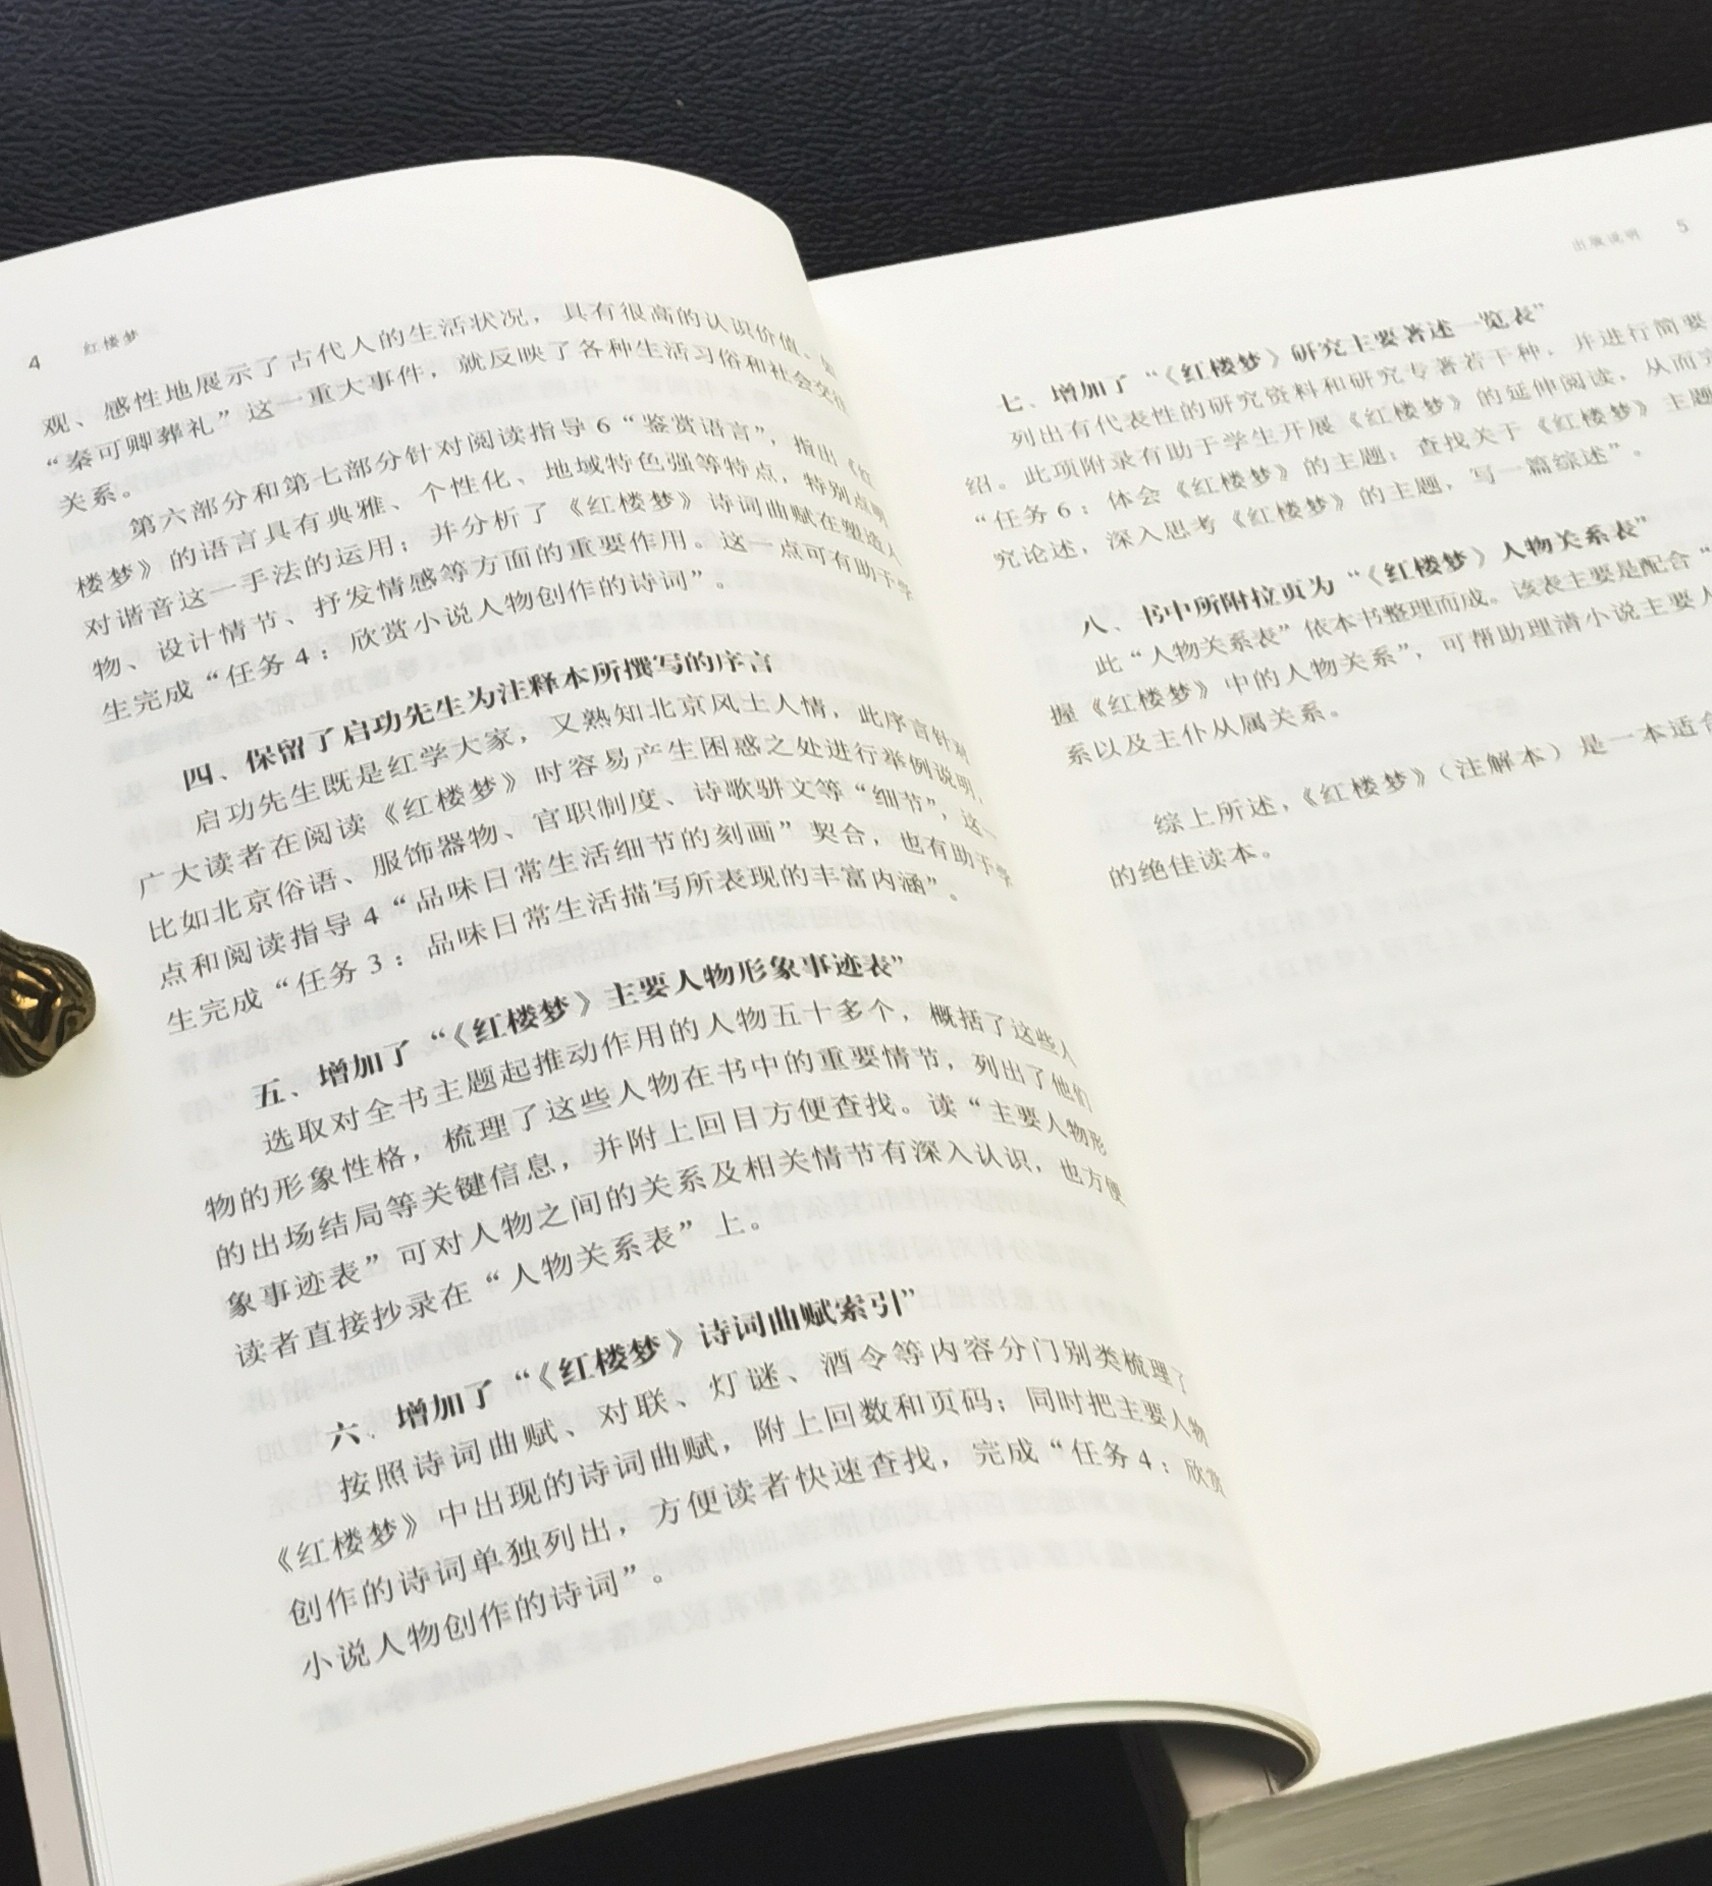 4 红楼梦
观、感性地展示了古代人的生活状况，具有很高的认识价值、
“秦可卿葬礼”这一重大事件，就反映了各种生活习俗和社会交往
关系。
第六部分和第七部分针对阅读指导6“鉴赏语言”，指出《红
楼梦》的语言具有典雅、个性化、地域特色强等特点，特别点明
对谐音这一手法的运用；并分析了《红楼梦》诗词曲赋在塑造人
物、设计情节、抒发情感等方面的重要作用。这一点可有助于学
生完成“任务4：欣赏小说人物创作的诗词”。
四、保留了启功先生为注释本所撰写的序言
启功先生既是红学大家，又熟知北京风土人情，此序言针对
广大读者在阅读《红楼梦》时容易产生困惑之处进行举例说明，
比如北京俗语、服饰器物、官职制度、诗歌骈文等“细节”，这一
点和阅读指导4“品味日常生活细节的刻画”契合，也有助于学
生完成“任务3：品味日常生活描写所表现的丰富内涵”。
五、增加了“《红楼梦》主要人物形象事迹表”
选取对全书主题起推动作用的人物五十多个，概括了这些人
物的形象性格，梳理了这些人物在书中的重要情节，列出了他们
的出场结局等关键信息，并附上回目方便查找。读“主要人物形
象事迹表”可对人物之间的关系及相关情节有深入认识，也方便
读者直接抄录在“人物关系表”上。
六、增加了“《红楼梦》诗词曲赋索引”
按照诗词曲赋、对联、灯谜、酒令等内容分门别类梳理了
《红楼梦》中出现的诗词曲赋，附上回数和页码；同时把主要人物
创作的诗词单独列出，方便读者快速查找，完成“任务4：欣赏
小说人物创作的诗词”。
出版说明 5
七、增加了“《红楼梦》研究主要著述一览表”
列出有代表性的研究资料和研究专著若干种，并进行简要
绍。此项附录有助于学生开展《红楼梦》的延伸阅读，从而完
“任务6：体会《红楼梦》的主题；查找关于《红楼梦》主题
究论述，深入思考《红楼梦》的主题，写一篇综述”。
八、书中所附拉页为“《红楼梦》人物关系表”
此“人物关系表”依本书整理而成。该表主要是配合“
握《红楼梦》中的人物关系”，可帮助理清小说主要人
系以及主仆从属关系。
综上所述，《红楼梦》（注解本）是一本适合
的绝佳读本。